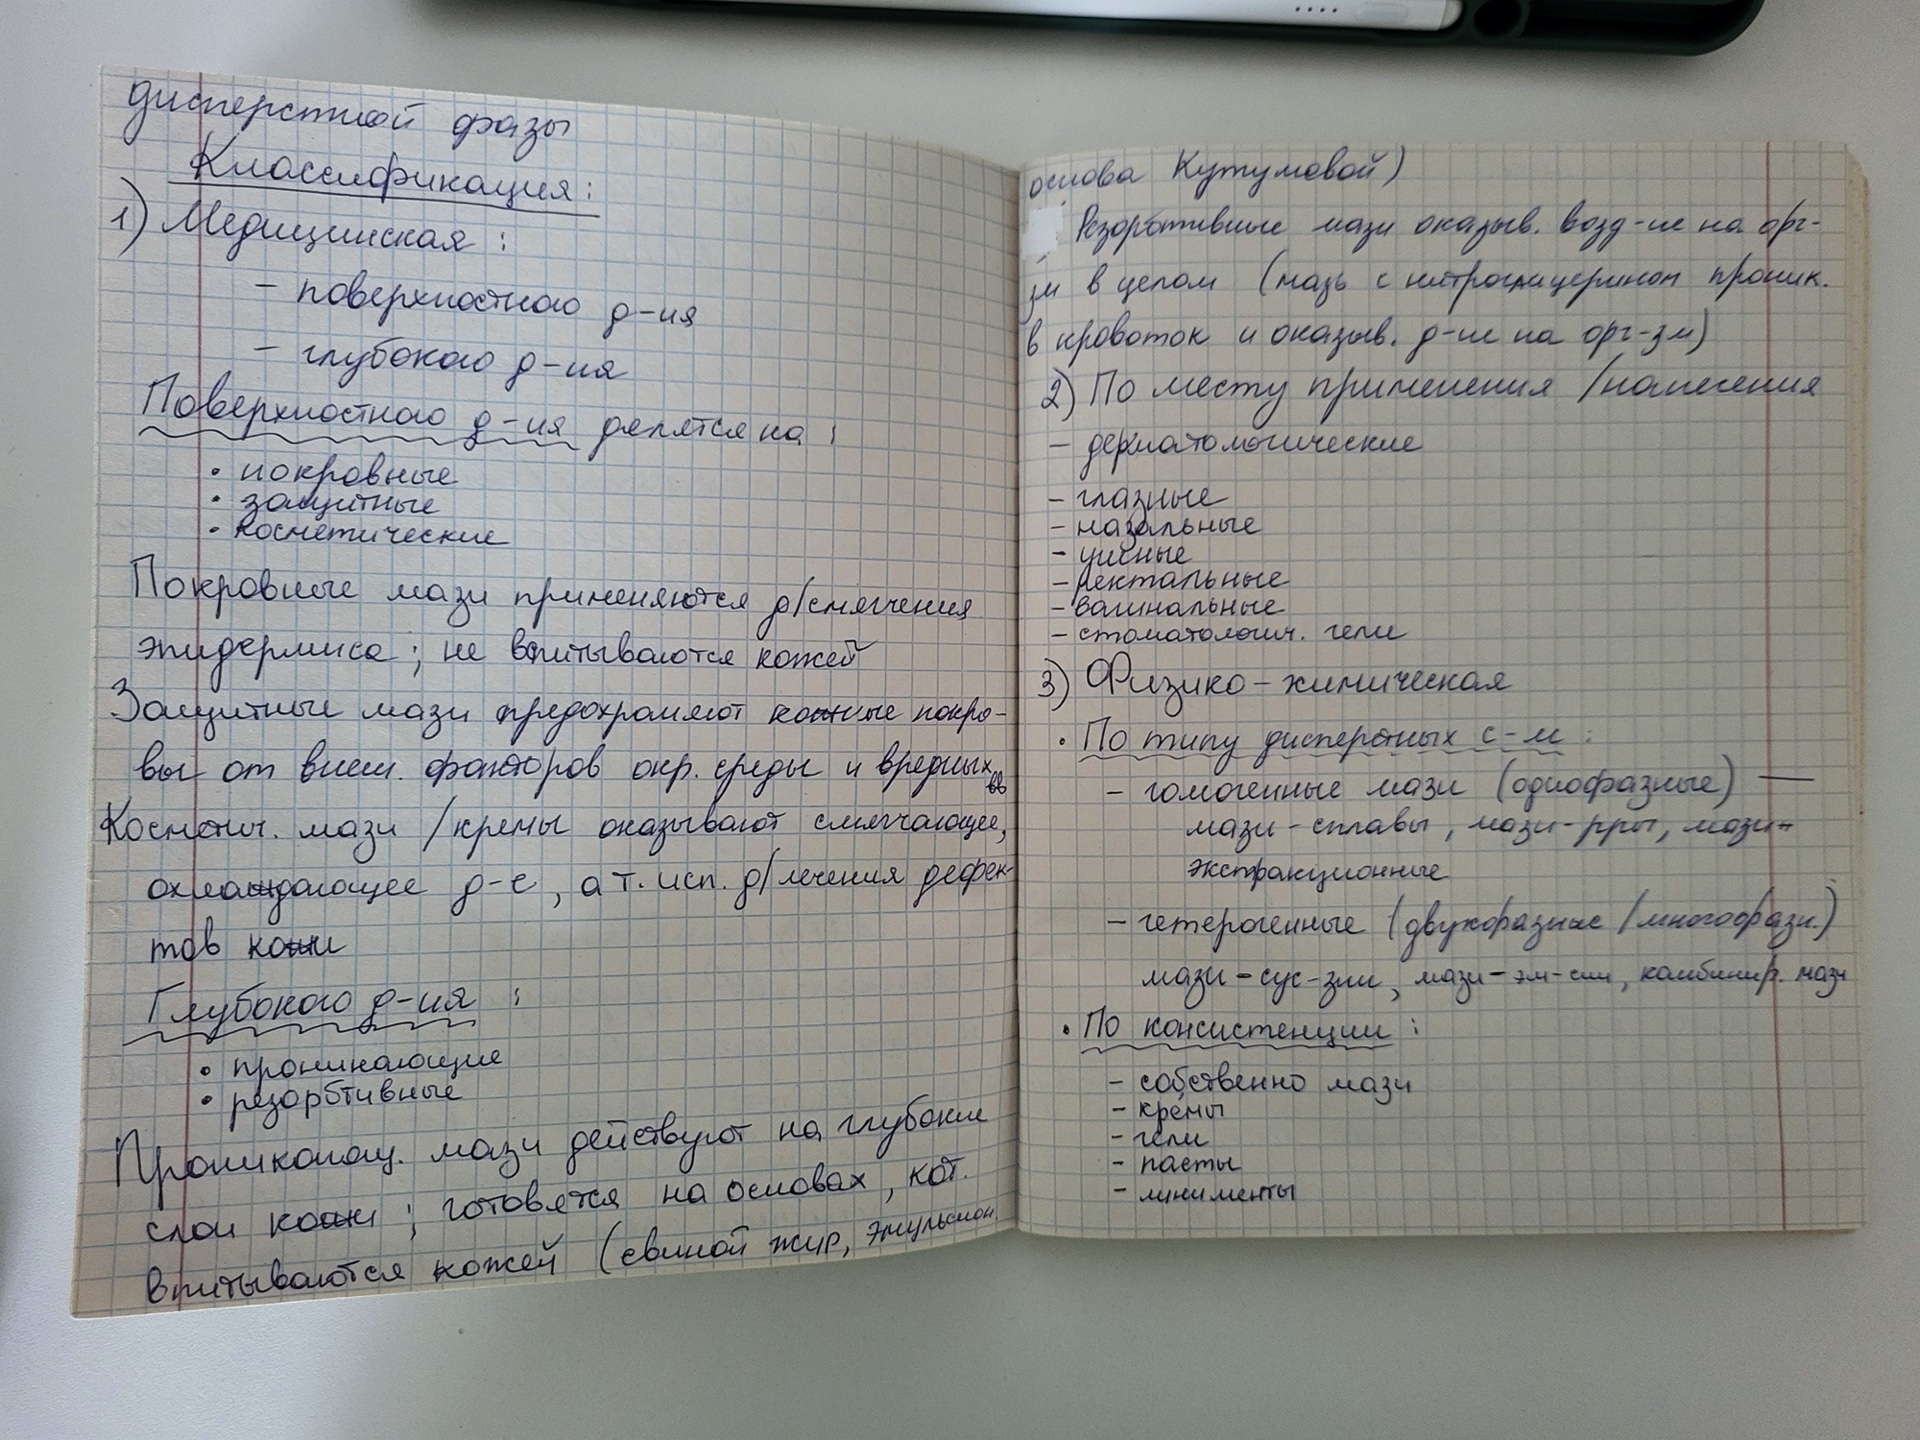 дисперстной фазы
Классификация:
1) Медицинская:
- поверхностного д-ия
- глубокого д-ия
Поверхностного д-ия делятся на:
• покровные
• защитные
• косметические
Покровные мази применяются д/смягчения
эпидермиса; не впитываются кожей
Защитные мази предохраняют кожные покро-
вы от внеш. факторов окр. среды и вредных вв
Косметич. мази /кремы оказывают смягчающее,
охлаждающее д-е, а т. исп. д/лечения дефек-
тов кожи
Глубокого д-ия:
• проникающие
• резорбтивные
Проникающ. мази действуют на глубокие
слои кожи; готовятся на основах, кот.
впитываются кожей (свиной жир, эмульсион.
основа Кутумовой)
Резорбтивные мази оказыв. возд-ие на орг-
зм в целом (мазь с нитроглицерином проник.
в кровоток и оказыв. д-ие на орг-зм)
2) По месту применения /нанесения
- дерматологические
- глазные
- назальные
- ушные
- ректальные
- вагинальные
- стоматологич. гели
3) Физико-химическая
• По типу дисперстных с-м:
- гомогенные мази (однофазные) —
мази-сплавы, мази-рры, мази-
экстракционные
- гетерогенные (двухфазные /многофазн.)
мази-сус-зии, мази-эм-сии, комбинир. мази
• По консистенции:
- собственно мази
- кремы
- гели
- пасты
- линименты